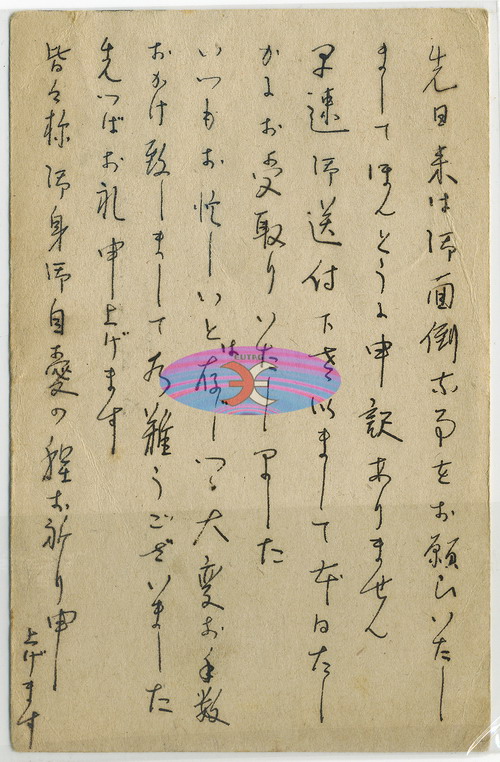 先日来は御面倒な事をお願いいたし
まして ほんとうに申訳ありません
早速御送付下さいまして 本日たし
かにお受取りいたしました
いつもお忙しいとは存じつゝ大変お手数
おかけ致しまして 有難うございました
先づはお礼申上げます
皆々様御身御自愛の程お祈り申
上げます